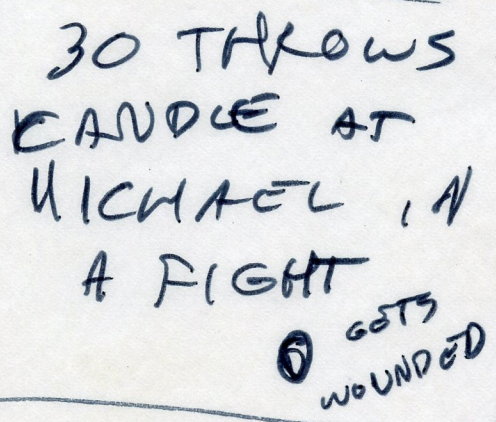 30 THROWS
CANDLE AT
MICHAEL IN
A FIGHT
6 GETS
WOUNDED